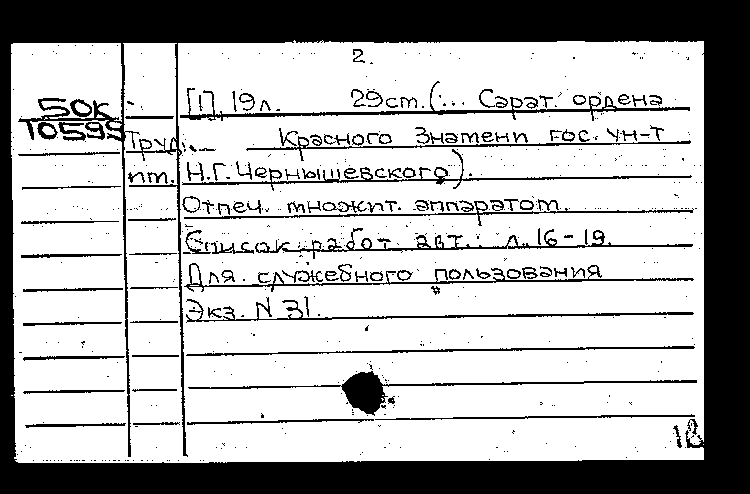 2.
50К [I], 19л. 29см. (... Сарат. ордена
Т0599 Труд. Красного Знамени гос. ун-т
им. Н.Г. Чернышевского).
Отпеч. множит. аппаратом.
Список работ авт.: л. 16-19.
Для служебного пользования
Экз. N 31.